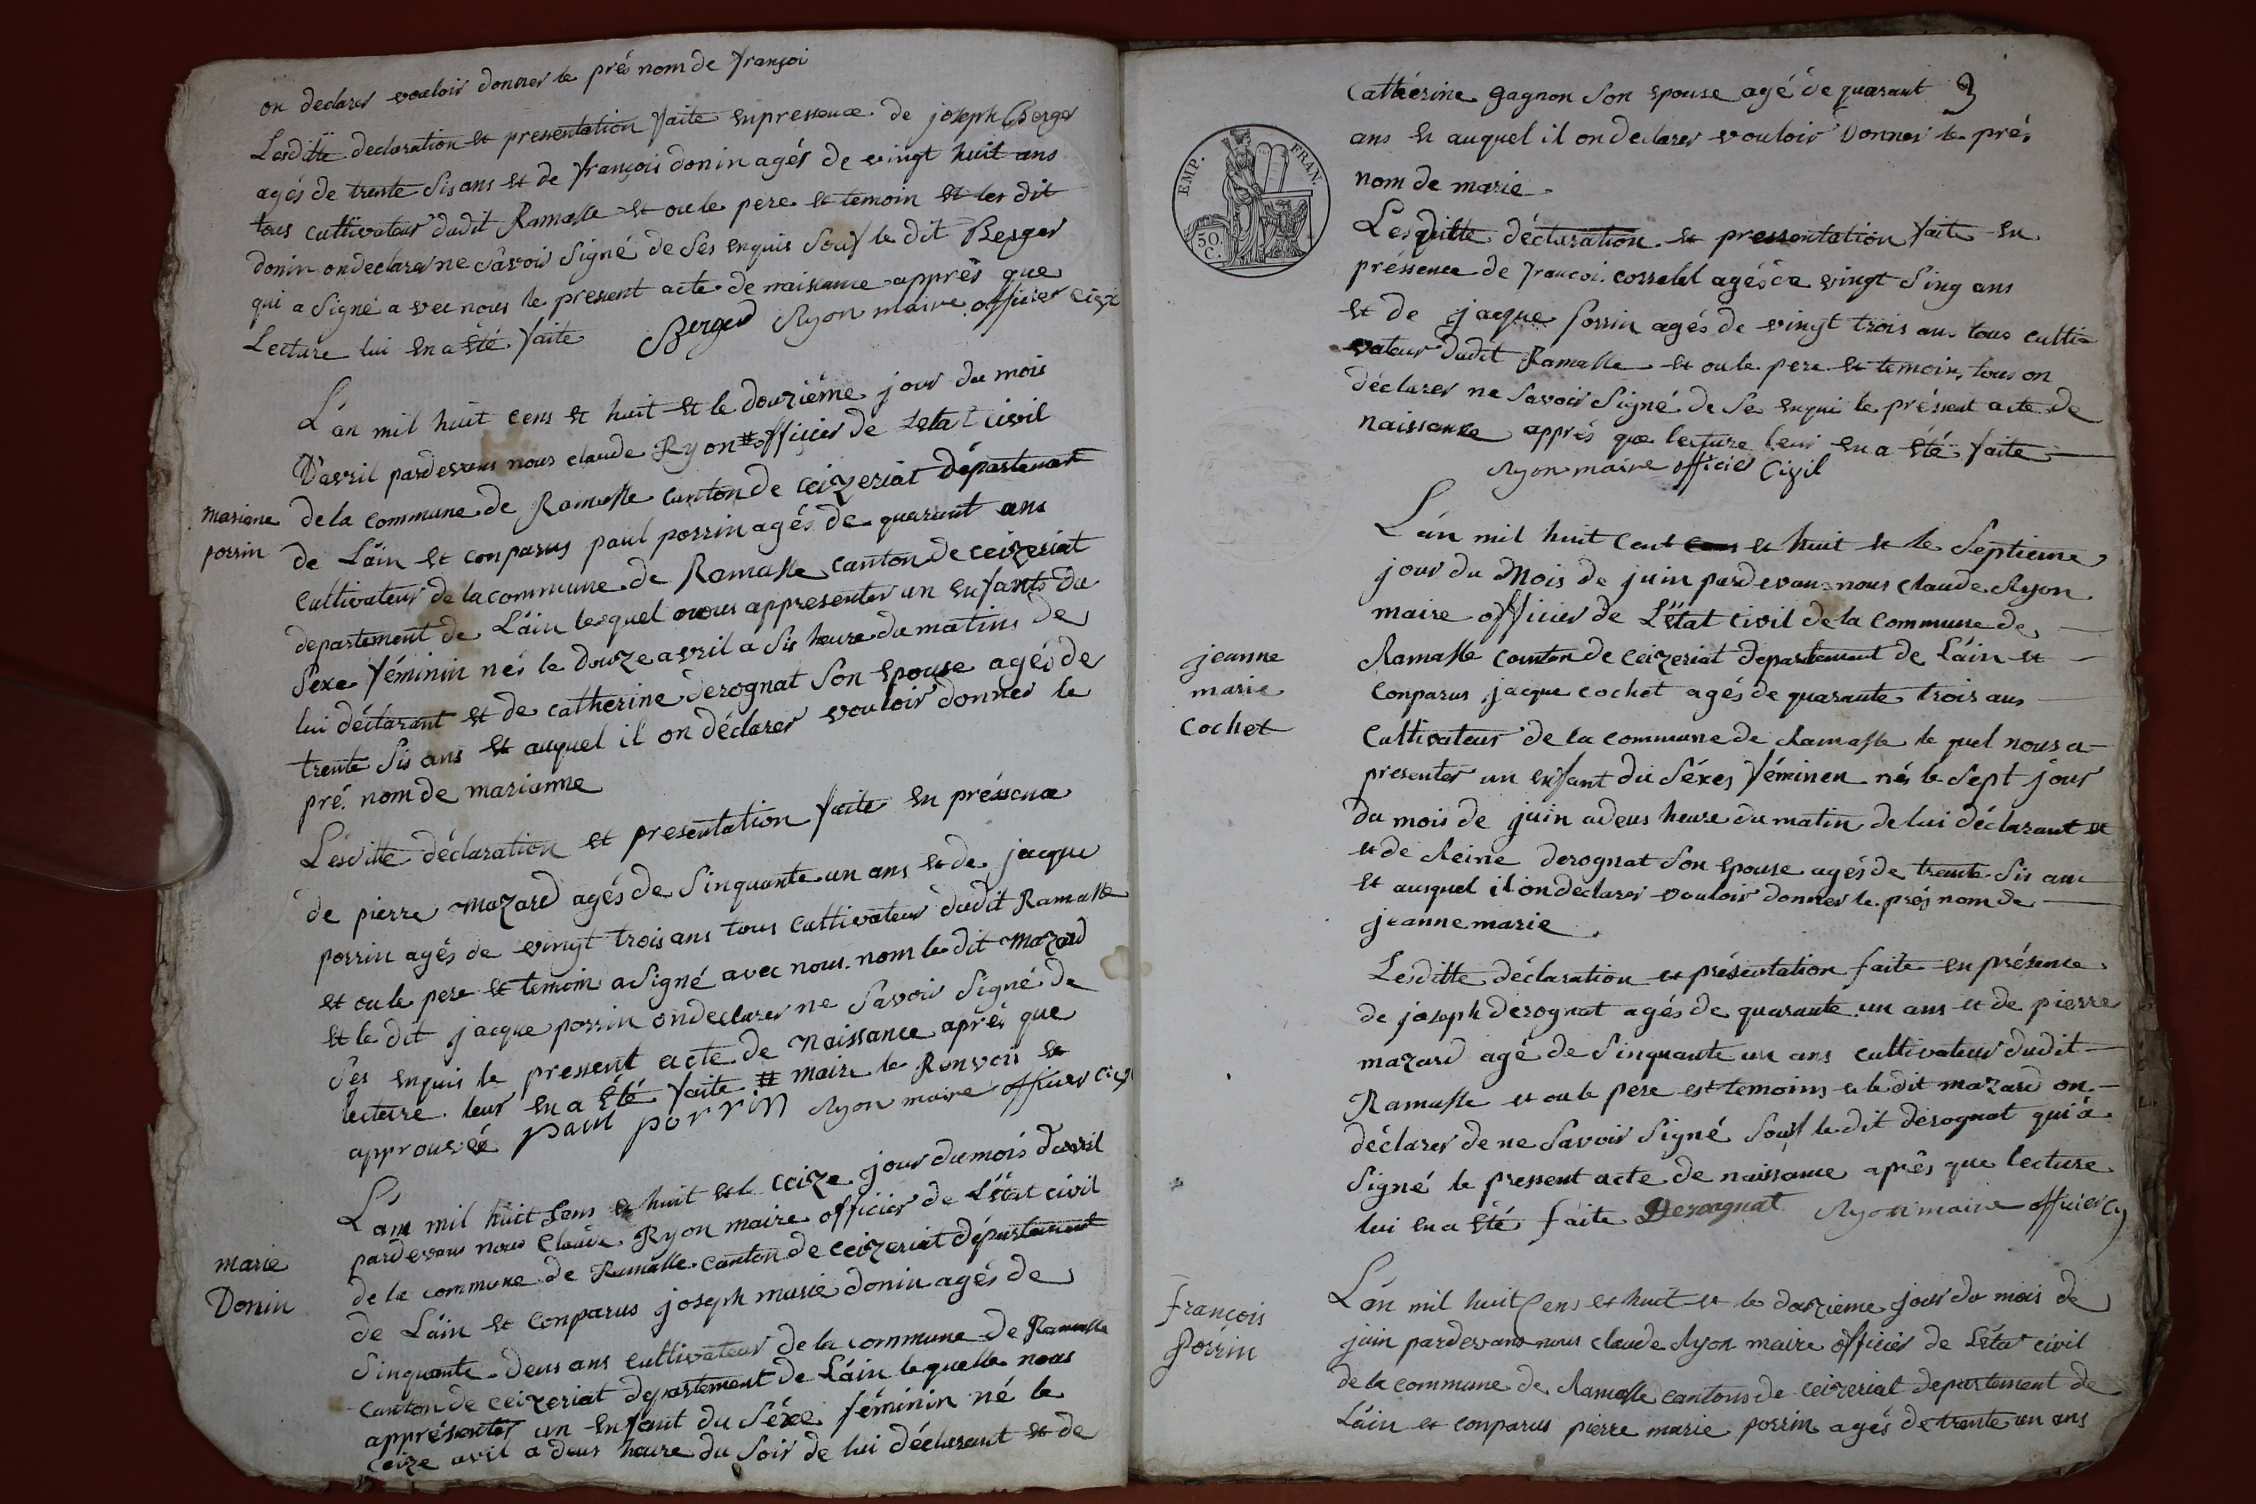 on declarer vouloir donner le pré nom de françoi
Lesditte declaration et presentation faite enpressence de joseph Berger
agés de trente sis ans et de françois donin agés de vingt huit ans
tous cultivateur dudit Ramasse et ou le pere et temoin et les dit
donin ondeclarer ne sávoir signé de ses enquis souf le dit Berger
qui a signé a vec nous le present acte de naissance apprés que
Lecture lui en a été faite Berger Ryon maire officier civi
L'án mil huit cens et huit et le douziéme jour du mois
D'avril pardevans nous claude Ryon # officier de Létat civil
mariane
porrin
de la commune de Ramasse canton de Ceizeriat département
de L'áin et conparus paul porrin agés de quarant ans
Cultivateur de la commune de Ramasse canton de ceizeriat
departement de L'áin lesquel nous appresenter un enfants du
sexe féminin nés le douze avril a sis heure du matins de
lui déclarant et de catherine derognat son epouse agés de
trente sis ans et auquel il on déclarer vouloir donner le
pré nom de marianne
Lesditte déclaration et presentation faite en préssence
de pierre mazard agés de sinquante un ans et de jacque
porrin agés de vingt trois ans tous cultivateur dudit Ramasse
et ou le pere et temoin a signé avec nous nom le dit mazard
et le dit jacque porrin ondeclarer ne savoir signé de
ses enquis le pressent acte de naissance aprés que
lecture leur en a été faite # maire le Renvoi et
approuvéé paul porrin Ryon maire officier civi
L'an mil huit sens et huit et le ceize jour dumois davril
pardevans nous Claude Ryon maire officier de L'état civil
marie
Donin
de la commune de Ramasse canton de ceizeriat département
de L'áin et conparus joseph marie donin agés de
sinquante deus ans cultivateur de la commune de Ramasse
canton de ceizeriat departement de L'áin lequelle nous
apprésenter un enfant du séxe féminin né le
ceize avril a deus heure du soir de lui déclarant et de
3
Cathérine gagnon son epouse agé de quarant
ans et auquel il on declarer vouloir donner le pré
nom de marie
EMP. FRAN.
50.
C.
Lesquitte déclaration et pressentation faite en
préssence de françoi corselet agés de vingt sing ans
et de jacque porrin agés de vingt trois ans tous culti=
vateur dudit Ramasse et ou le pere et temoins tous on
déclarer ne savoir signé de se enqui le préssent acte de
naissance apprés que lecture leur en a été faite
Ryon maire officier Civil
L'án mil huit cent cens et huit et le septieme
jour du mois de juin pardevans nous claude Ryon
maire officier de L'état civil de la commune de
jeanne
marie
Cochet
Ramasse counton de ceizeriat departement de L'áin et
conparus jacque cochet agés de quarante trois ans
Cultivateur de la commune de Ramasse le quel nous a
presenter un enfant du séxes féminen nés le sept jour
du mois de juin a deus heure du matin de lui déclarant et
et de Reine derognat son epouse agés de trente sis ans
et auquel il on declarer vouloir donner le prés nom de
jeanne marie
Lesditte déclaration et présentation faite en présence
de joseph derognat agés de quarante un ans et de pierre
mazard agé de sinquante un ans cultivateur dudit
Ramasse et ou le pere est temoins et le dit mazard on
déclarer de ne savoir signé souf le dit derognat qui à
signé le pressent acte de naissance aprés que lecture
lui en a été faite Derognat Ryon maire officier Cy
françois
Porrin
L'án mil huit Cens et huit et le douzieme jour du mois de
juin pardevans nous claude Ryon maire officier de L'état civil
de la commune de Ramasse cantons de ceizeriat departement de
L'áin et conparus pierre marie porrin agés de trente un ans